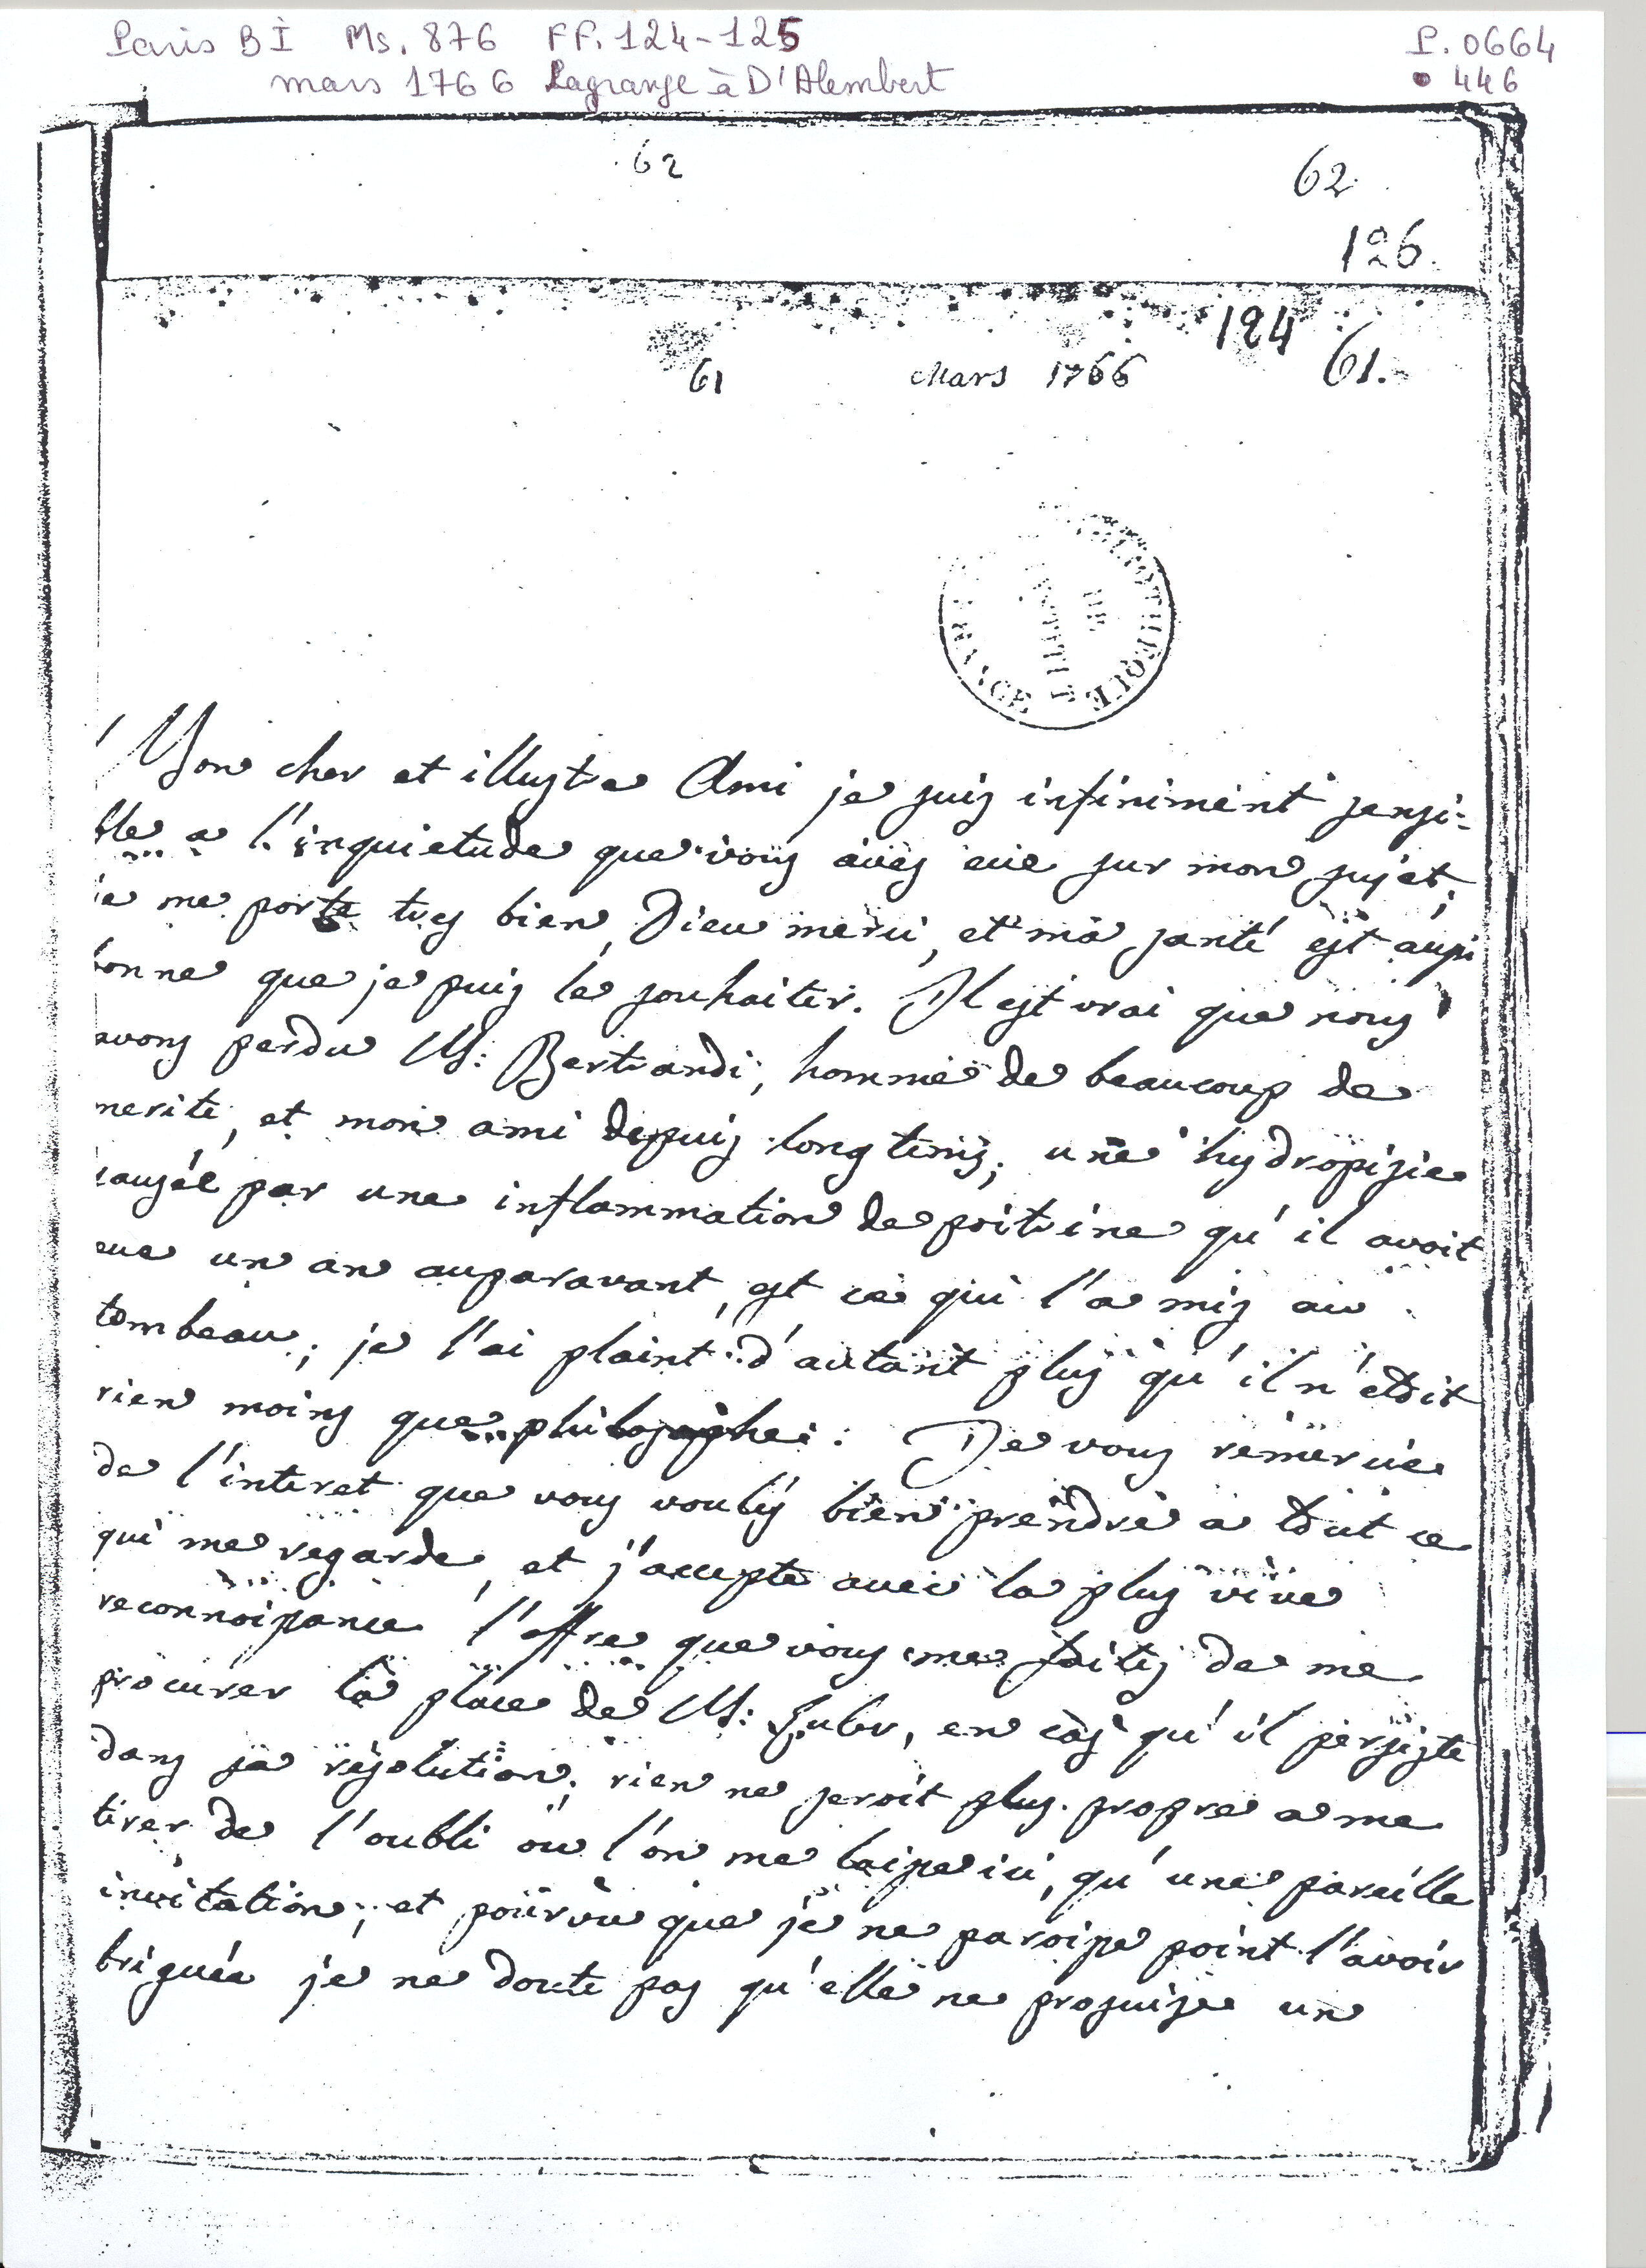 Paris BI Ms. 876 FF. 124-125 P. 0664
mars 1766 Lagrange à D'Alembert 446
62 62
126.
124
61 Mars 1766 61.
BIBLIOTHEQUE
DE
INSTITUT
FRANCE
Mon cher et illustre Ami je suis infiniment sensi-
ble a l'inquietude que vous avés eüe sur mon sujet;
je me porte tres bien, Dieu merci, et ma santé est aussi
bonne que je puis la souhaiter. Il est vrai que nous
avons perdu M: Bertrandi, homme de beaucoup de
merite, et mon ami depuis long tems; une hydropisie
causée par une inflammation de poitrine qu'il avoit
eue un an auparavant, est ce qui l'a mis au
tombeau; je l'ai plaint d'autant plus qu'il n'etoit
rien moins que philosophe. Je vous remercie
de l'interet que vous voulés bien prendre a tout ce
qui me regarde, et j'accepte avec la plus vive
reconnoissance l'offre que vous me faites de me
procurer la place de M: Euler, en cas qu'il persiste
dans sa résolution; rien ne seroit plus propre a me
tirer de l'oubli ou l'on me laisse ici, qu'une pareille
invitation; et pourvu que je ne paroisse point l'avoir
briguée je ne doute pas qu'elle ne produise un